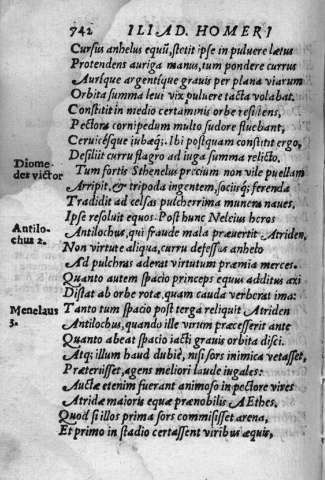 742 ILIAD. HOMERI
Cursus anhelus equû, stetit ipse in puluere lætus
Protendens auriga manus, tum pondere currus
Auriq́ue argentiq́ue grauis per plana viarum
Orbita summa leui vix puluere tacta volabat.
Constitit in medio certaminis orbe resistens,
Pectora cornipedum multo sudore fluebant,
Ceruicésque iubæq́;. Ibi postquam constitit ergo,
Desiliit curru flagro ad iuga summa relicto.
Diome-
des victor
Tum fortis Sthenelus precium non vile puellam
Arripit, & tripoda ingentem, socijsq́; ferenda
Tradidit ad celsas pulcherrima munera naues,
Ipse resoluit equos. Post hunc Neleius heros
Antilo-
chus 2.
Antilochus, qui fraude mala præuertit Atriden,
Non virtute aliqua, curru defessus anhelo
Ad pulchras aderat virtutum præmia merces.
Quanto autem spacio princeps equus additus axi
Distat ab orbe rotæ, quam cauda verberat ima:
Menelaus
3.
Tanto tum spacio post terga reliquit Atriden
Antilochus, quando ille virum præcesserit ante
Quanto abeat spacio iacti grauis orbita disci.
Atq; illum haud dubiè, nisi sors inimica vetasset,
Præterijsset, agens meliori laude iugales:
Auctæ etenim fuerant animoso in pectore vires
Atridæ maioris equæ prænobilis AEthes.
Quod si illos prima sors commisisset arena,
Et primo in stadio certassent viribus æquis,